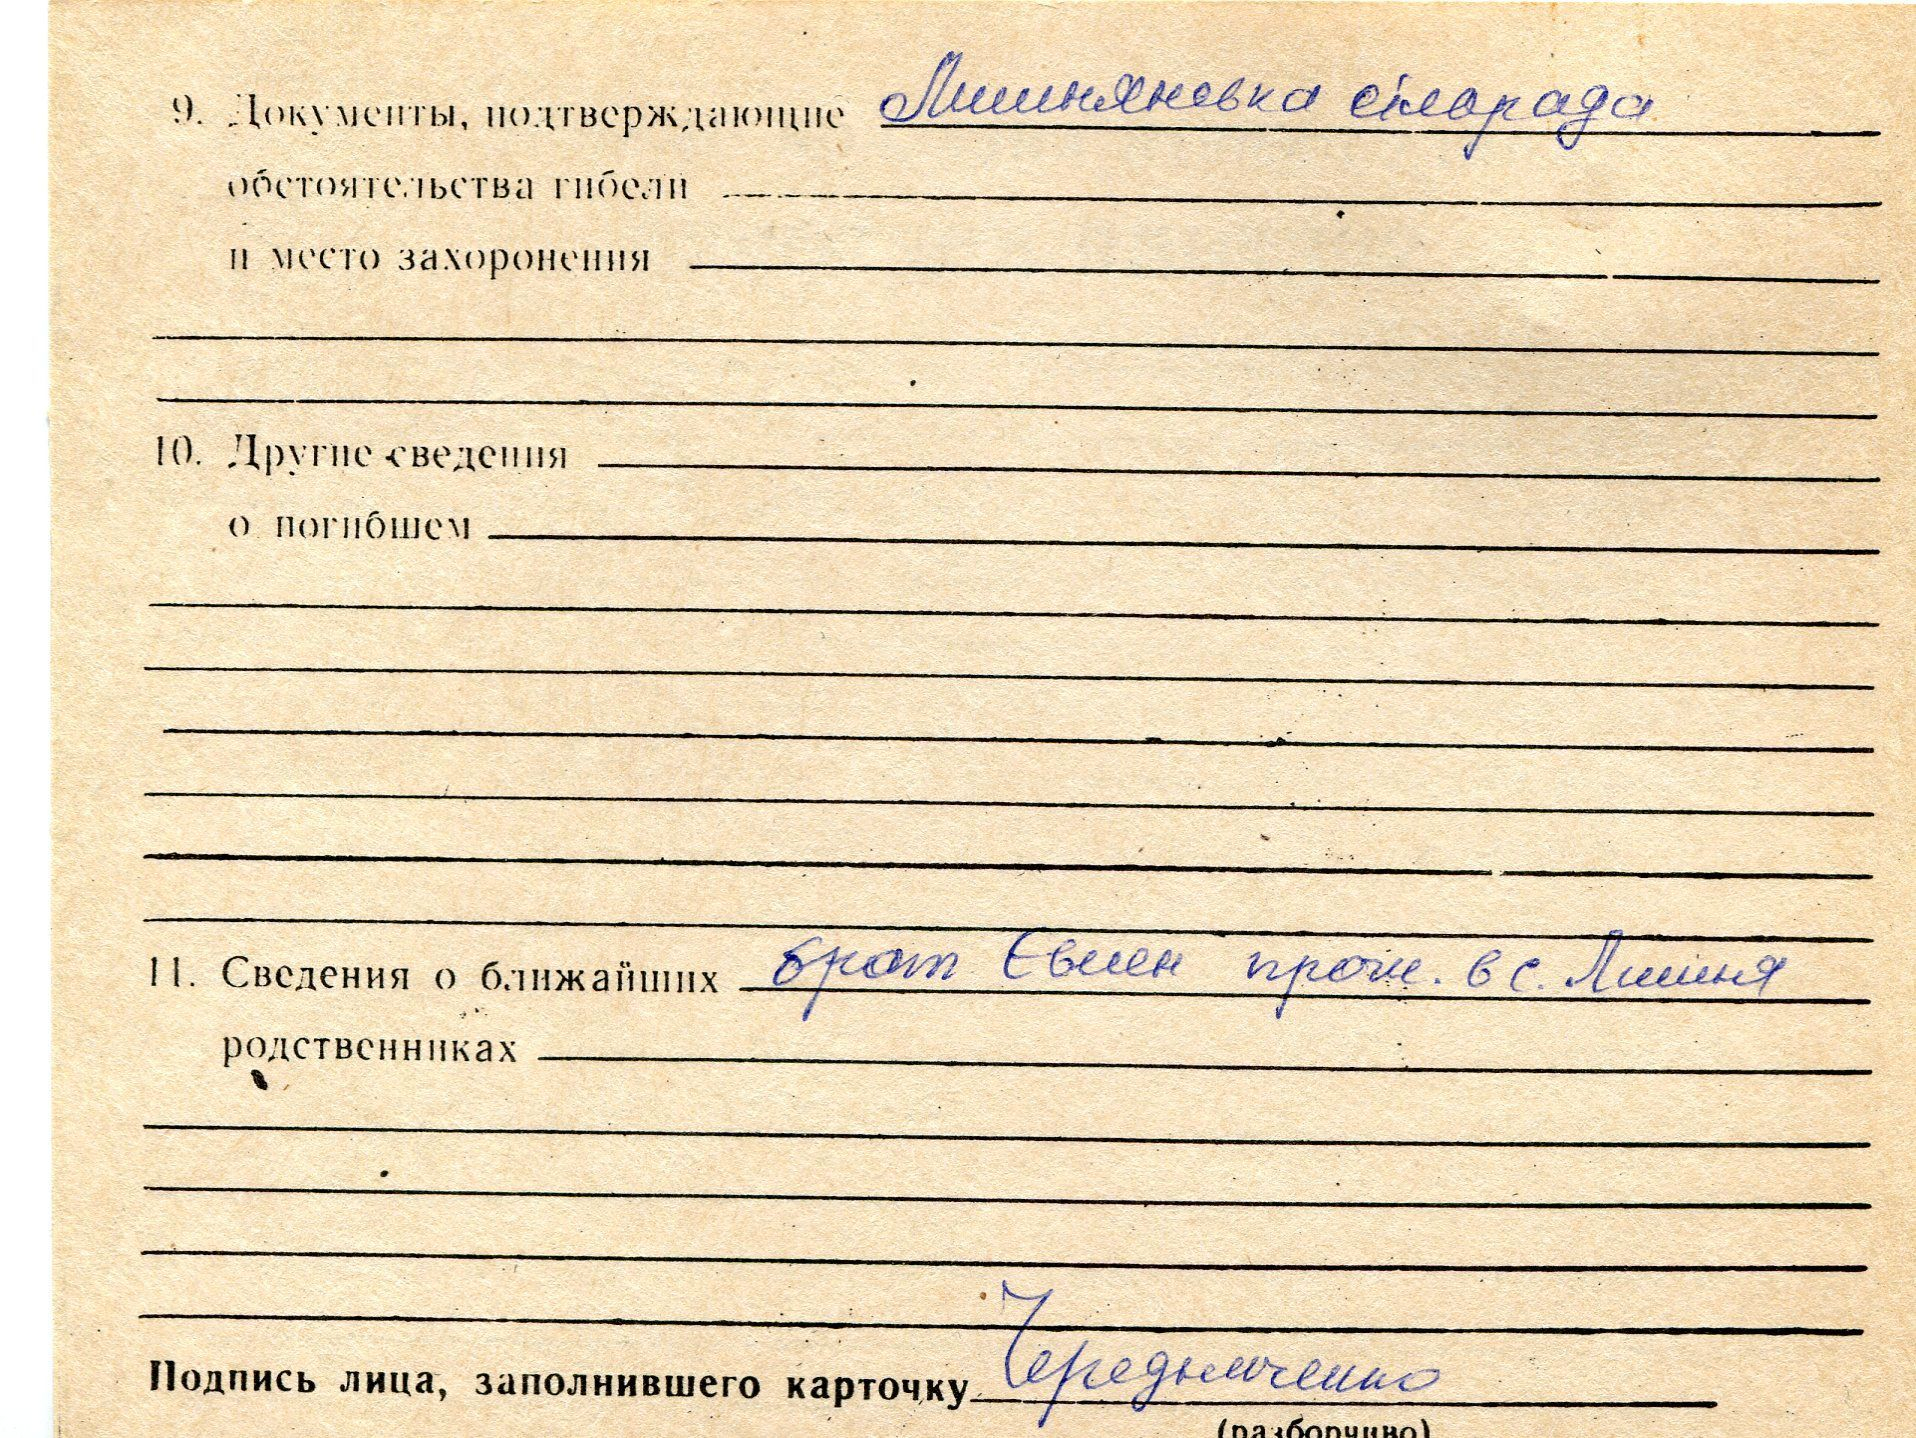 9. Документы, подтверждающие Лишнянська сільрада
обстоятельства гибели
и место захоронения
10. Другие сведения
о погибшем
11. Сведения о ближайших брат Євмен прож. в с. Лишня
родственниках
Подпись лица, заполнившего карточку
(разборчиво)